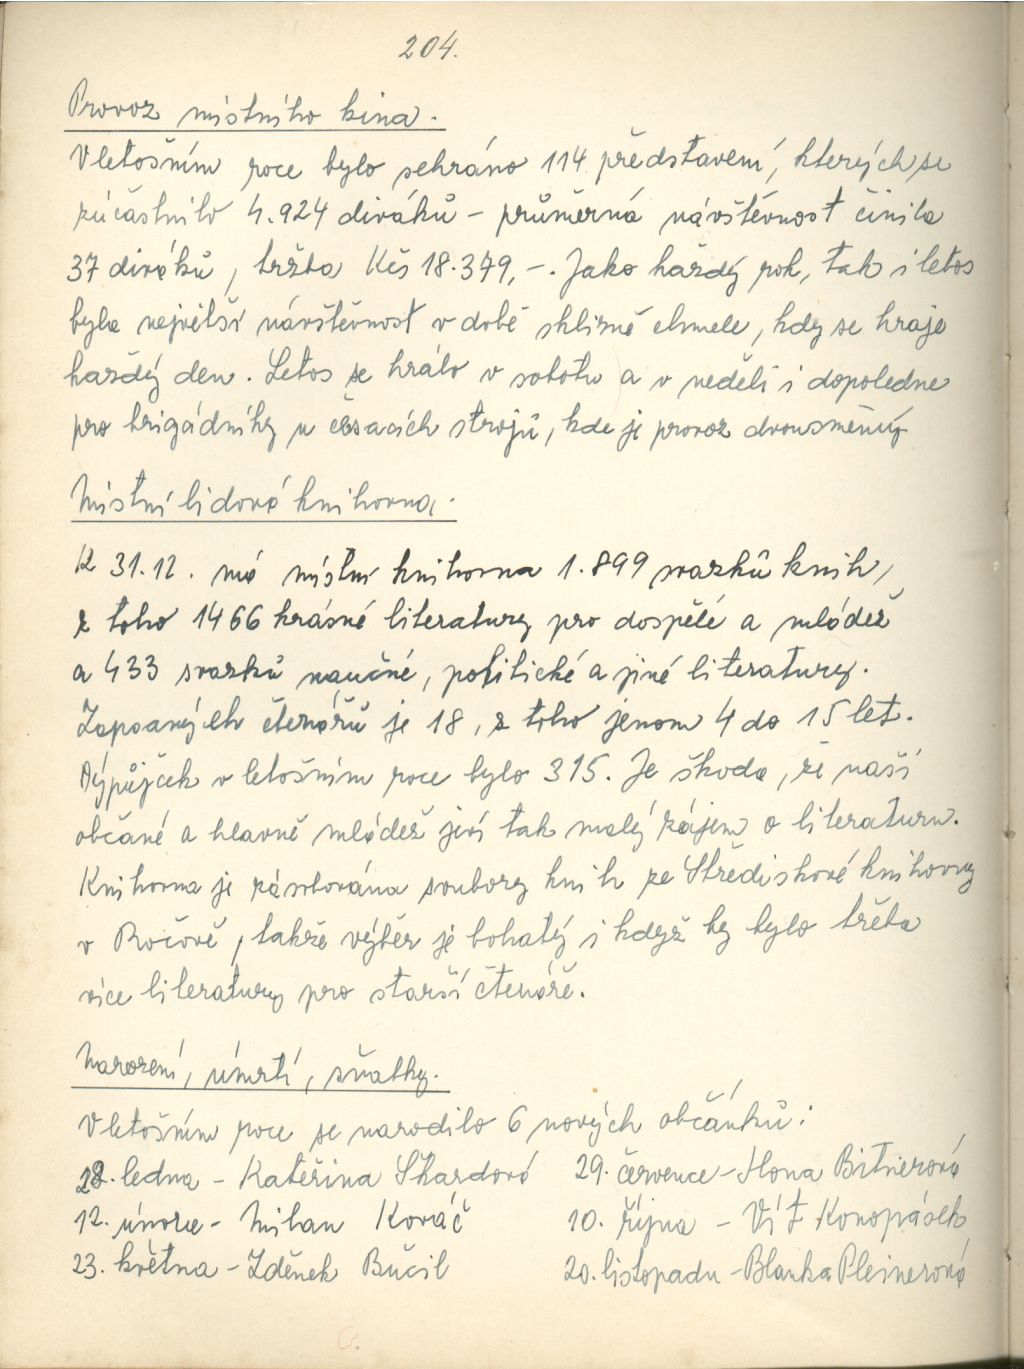 204.
Provoz místního kina.
V letošním roce bylo sehráno 114 představení, kterých se
zúčastnilo 4.924 diváků - průměrná návštěvnost činila
37 diváků, tržba Kčs 18.379,-. Jako každý rok, tak i letos
byla největší návštěvnost v době sklizně chmele, kdy se hraje
každý den. Letos se hrálo v sobotu a v neděli i dopoledne
pro brigádníky u česacích strojů, kde je provoz dvousměnný
Místní lidová knihovna.
K 31.12. má místní knihovna 1.899 svazků knih,
z toho 1466 krásné literatury pro dospělé a mládež
a 433 svazků naučné, politické a jiné literatury.
Zapsaných čtenářů je 18, z toho jenom 4 do 15 let.
Výpůjček v letošním roce bylo 315. Je škoda, že naši
občané a hlavně mládež jeví tak malý zájem o literaturu.
Knihovna je zásobována soubory knih ze Střediskové knihovny
v Ročově, takže výběr je bohatý i když by bylo třeba
více literatury pro starší čtenáře.
Narození, úmrtí, sňatky.
V letošním roce se narodilo 6 nových občánků:
28. ledna - Kateřina Škardová 29. července - Ilona Bitnerová
12. února - Milan Kováč 10. října - Vít Konopásek
23. května - Zděnek Bučil 20. listopadu - Blanka Pleinerová